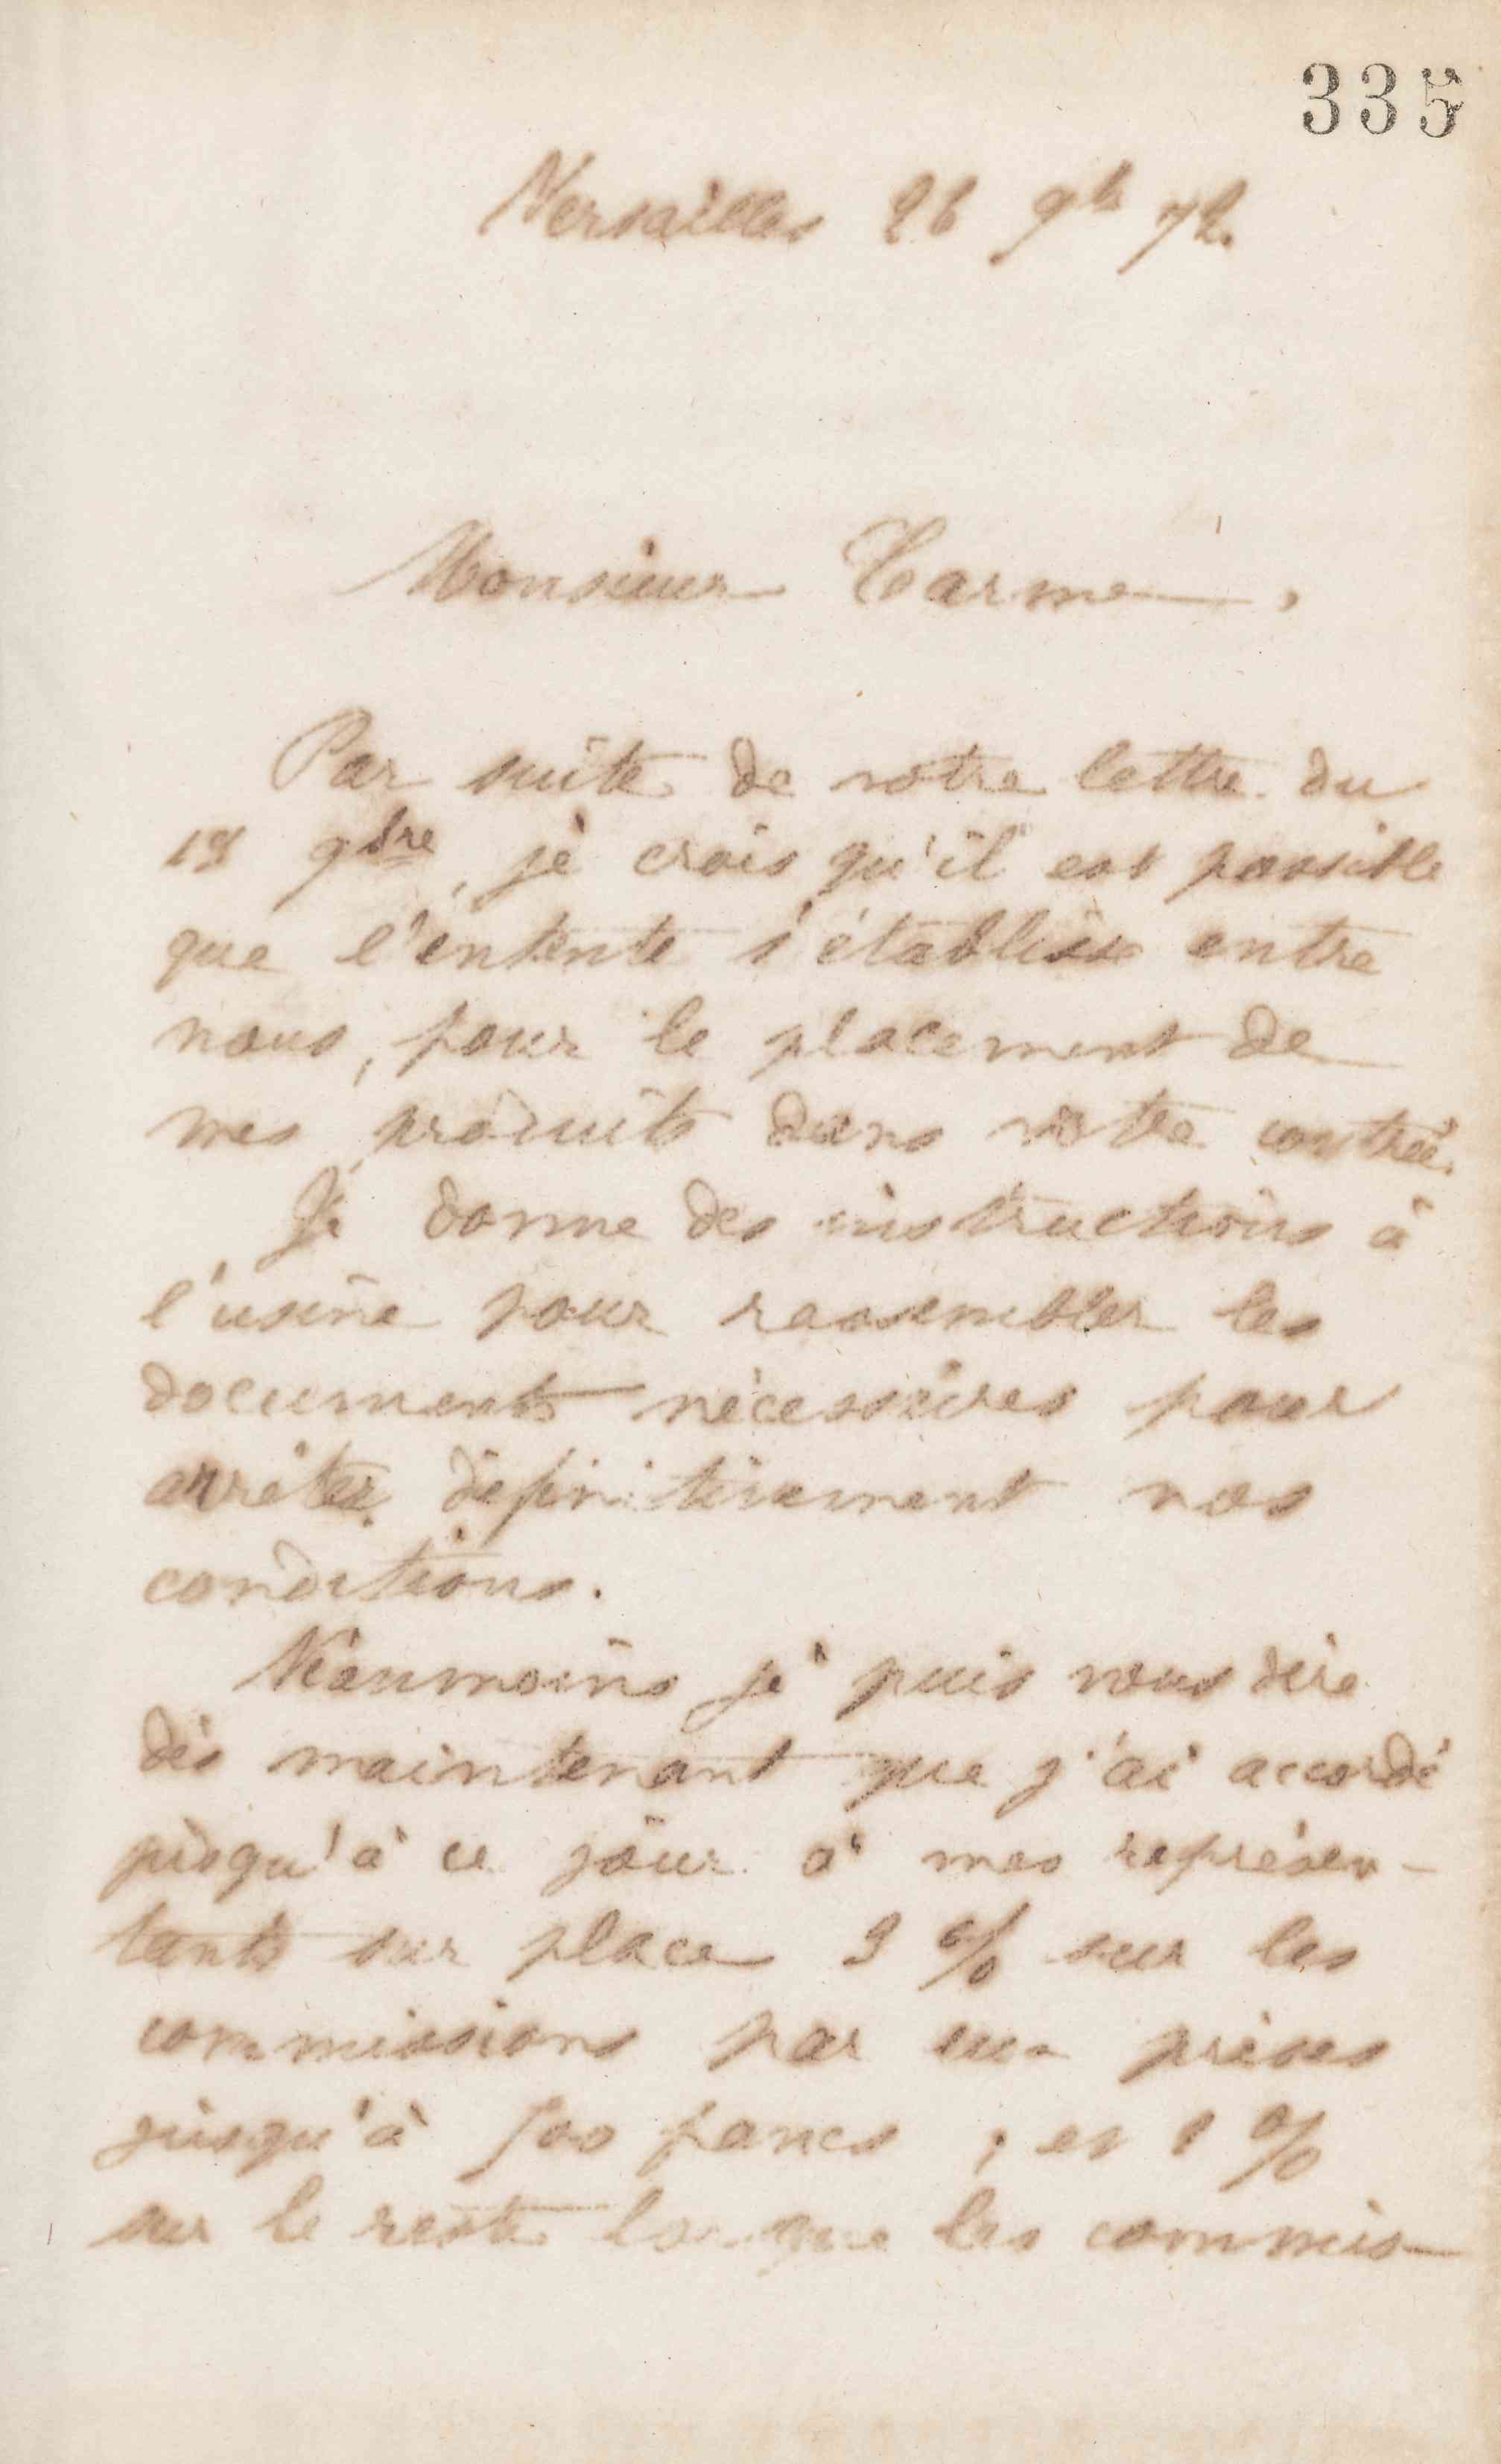 335
Versailles 26 9bre 72.
Monsieur Carme,
Par suite de votre lettre du
19 9bre, je crois qu'il est possible
que l'entente s'établisse entre
nous, pour le placement de
mes produits dans votre contrée.
Je donne des instructions à
l'usine pour rassembler les
documents nécessaires pour
arrêter définitivement nos
conditions.
Néanmoins je puis vous dire
dès maintenant que j'ai accordé
jusqu'à ce jour à mes représen-
tants sur place % sur les
commissions par eux prises
jusqu'à 500 francs, et %
sur le reste lorsque les commis-